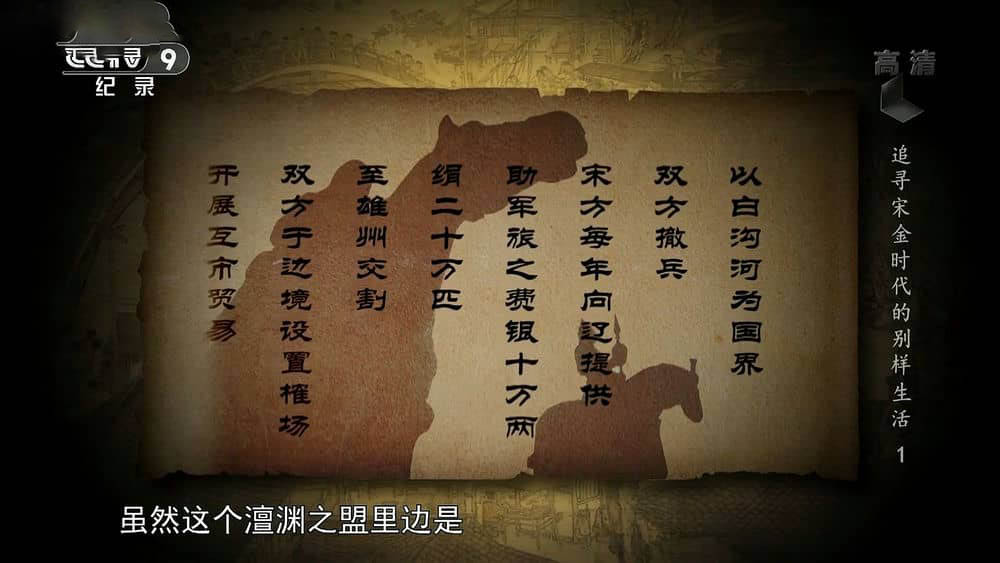 9
纪录
高清
追寻宋金时代的别样生活 1
以白沟河为国界
双方撤兵
宋方每年向辽提供
助军旅之费银十万两
绢二十万匹
至雄州交割
双方于边境设置榷场
开展互市贸易
虽然这个澶渊之盟里边是